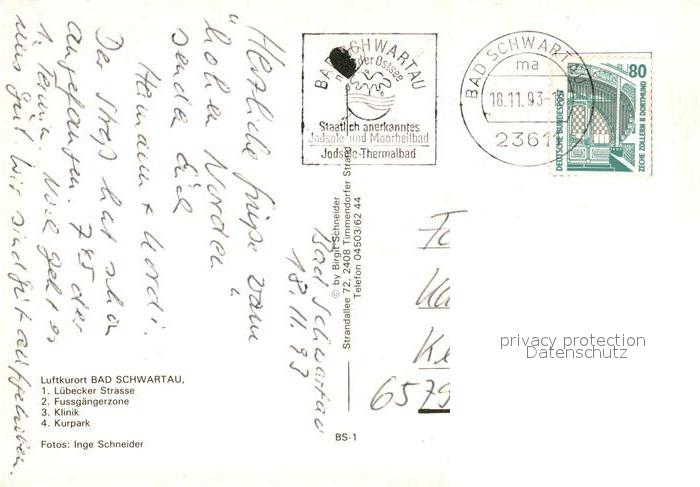 Bad Schwartau
18.11.93
Herzliche Grüße vom
"hohen Norden"
sendet dir
Hermann + Nordi.
Der Stress hat schon
angefangen. 7.45 der
1. Termin. Uns geht es
gut. Wir sind gut aufgehoben.
BAD SCHWARTAU
der Ostsee
Staatlich anerkanntes
Jodsole- und Moorheilbad
Jodsole-Thermalbad
BAD SCHWARTAU
ma
18.11.93
2361
80
DEUTSCHE BUNDESPOST
ZECHE ZOLLERN II DORTMUND
© by Birgit Schneider
Strandallee 72, 2408 Timmendorfer Strand
Telefon 04503/62 44
6579
privacy protection
Datenschutz
Luftkurort BAD SCHWARTAU,
1. Lübecker Strasse
2. Fussgängerzone
3. Klinik
4. Kurpark
Fotos: Inge Schneider
BS-1